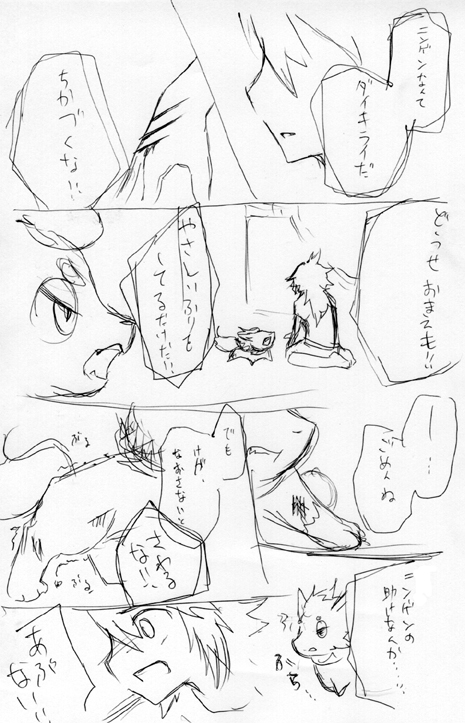 ニンゲンなんて
ダイキライだ
ちかづくな!!
どうせ おまえも!!
やさしいふりを
してるだけだ!!
……
ごめんね
でも
けが、
なおさないと
さわるな!!
ニンゲンの
助けなんか……
あぶない!!